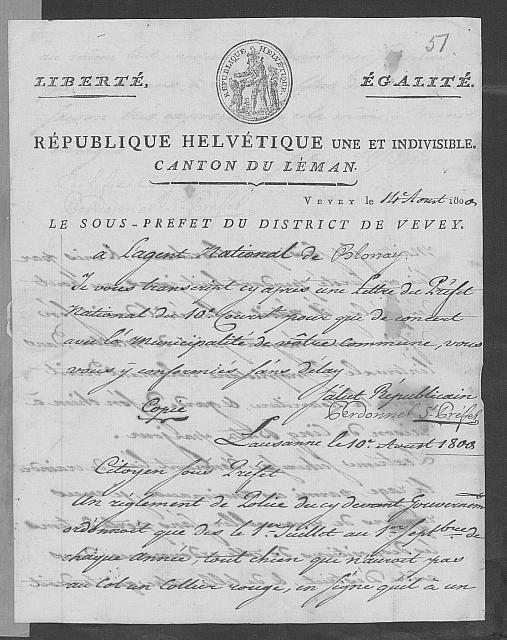 51.
RÉPUBLIQUE HELVÉTIQUE.
LIBERTÉ,
ÉGALITÉ.
RÉPUBLIQUE HELVÉTIQUE UNE ET INDIVISIBLE.
CANTON DU LÉMAN.
VEVEY le 14e Aoust 1800
LE SOUS-PREFET DU DISTRICT DE VEVEY.
a L'agent National de Blonay
Je vous transcript cy après une Lettre du Préfet
National du 10e Courant pour que de concert
avec la Municipalité de vôtre commune, vous
vous ÿ conformies sans délay
Salut Républicain
Perdonnet S: Préfet
Copie
Lausanne le 10e Aoust 1800
Citoyen sous Préfet
Un réglement de Police du cy devant Gouvernem
ordonnoit que dès le 1er Juillet au 1er Septbre de
chaque année, tout chien qui n'auroit pas
au Col un Collier rouge, en signe qu'il a un